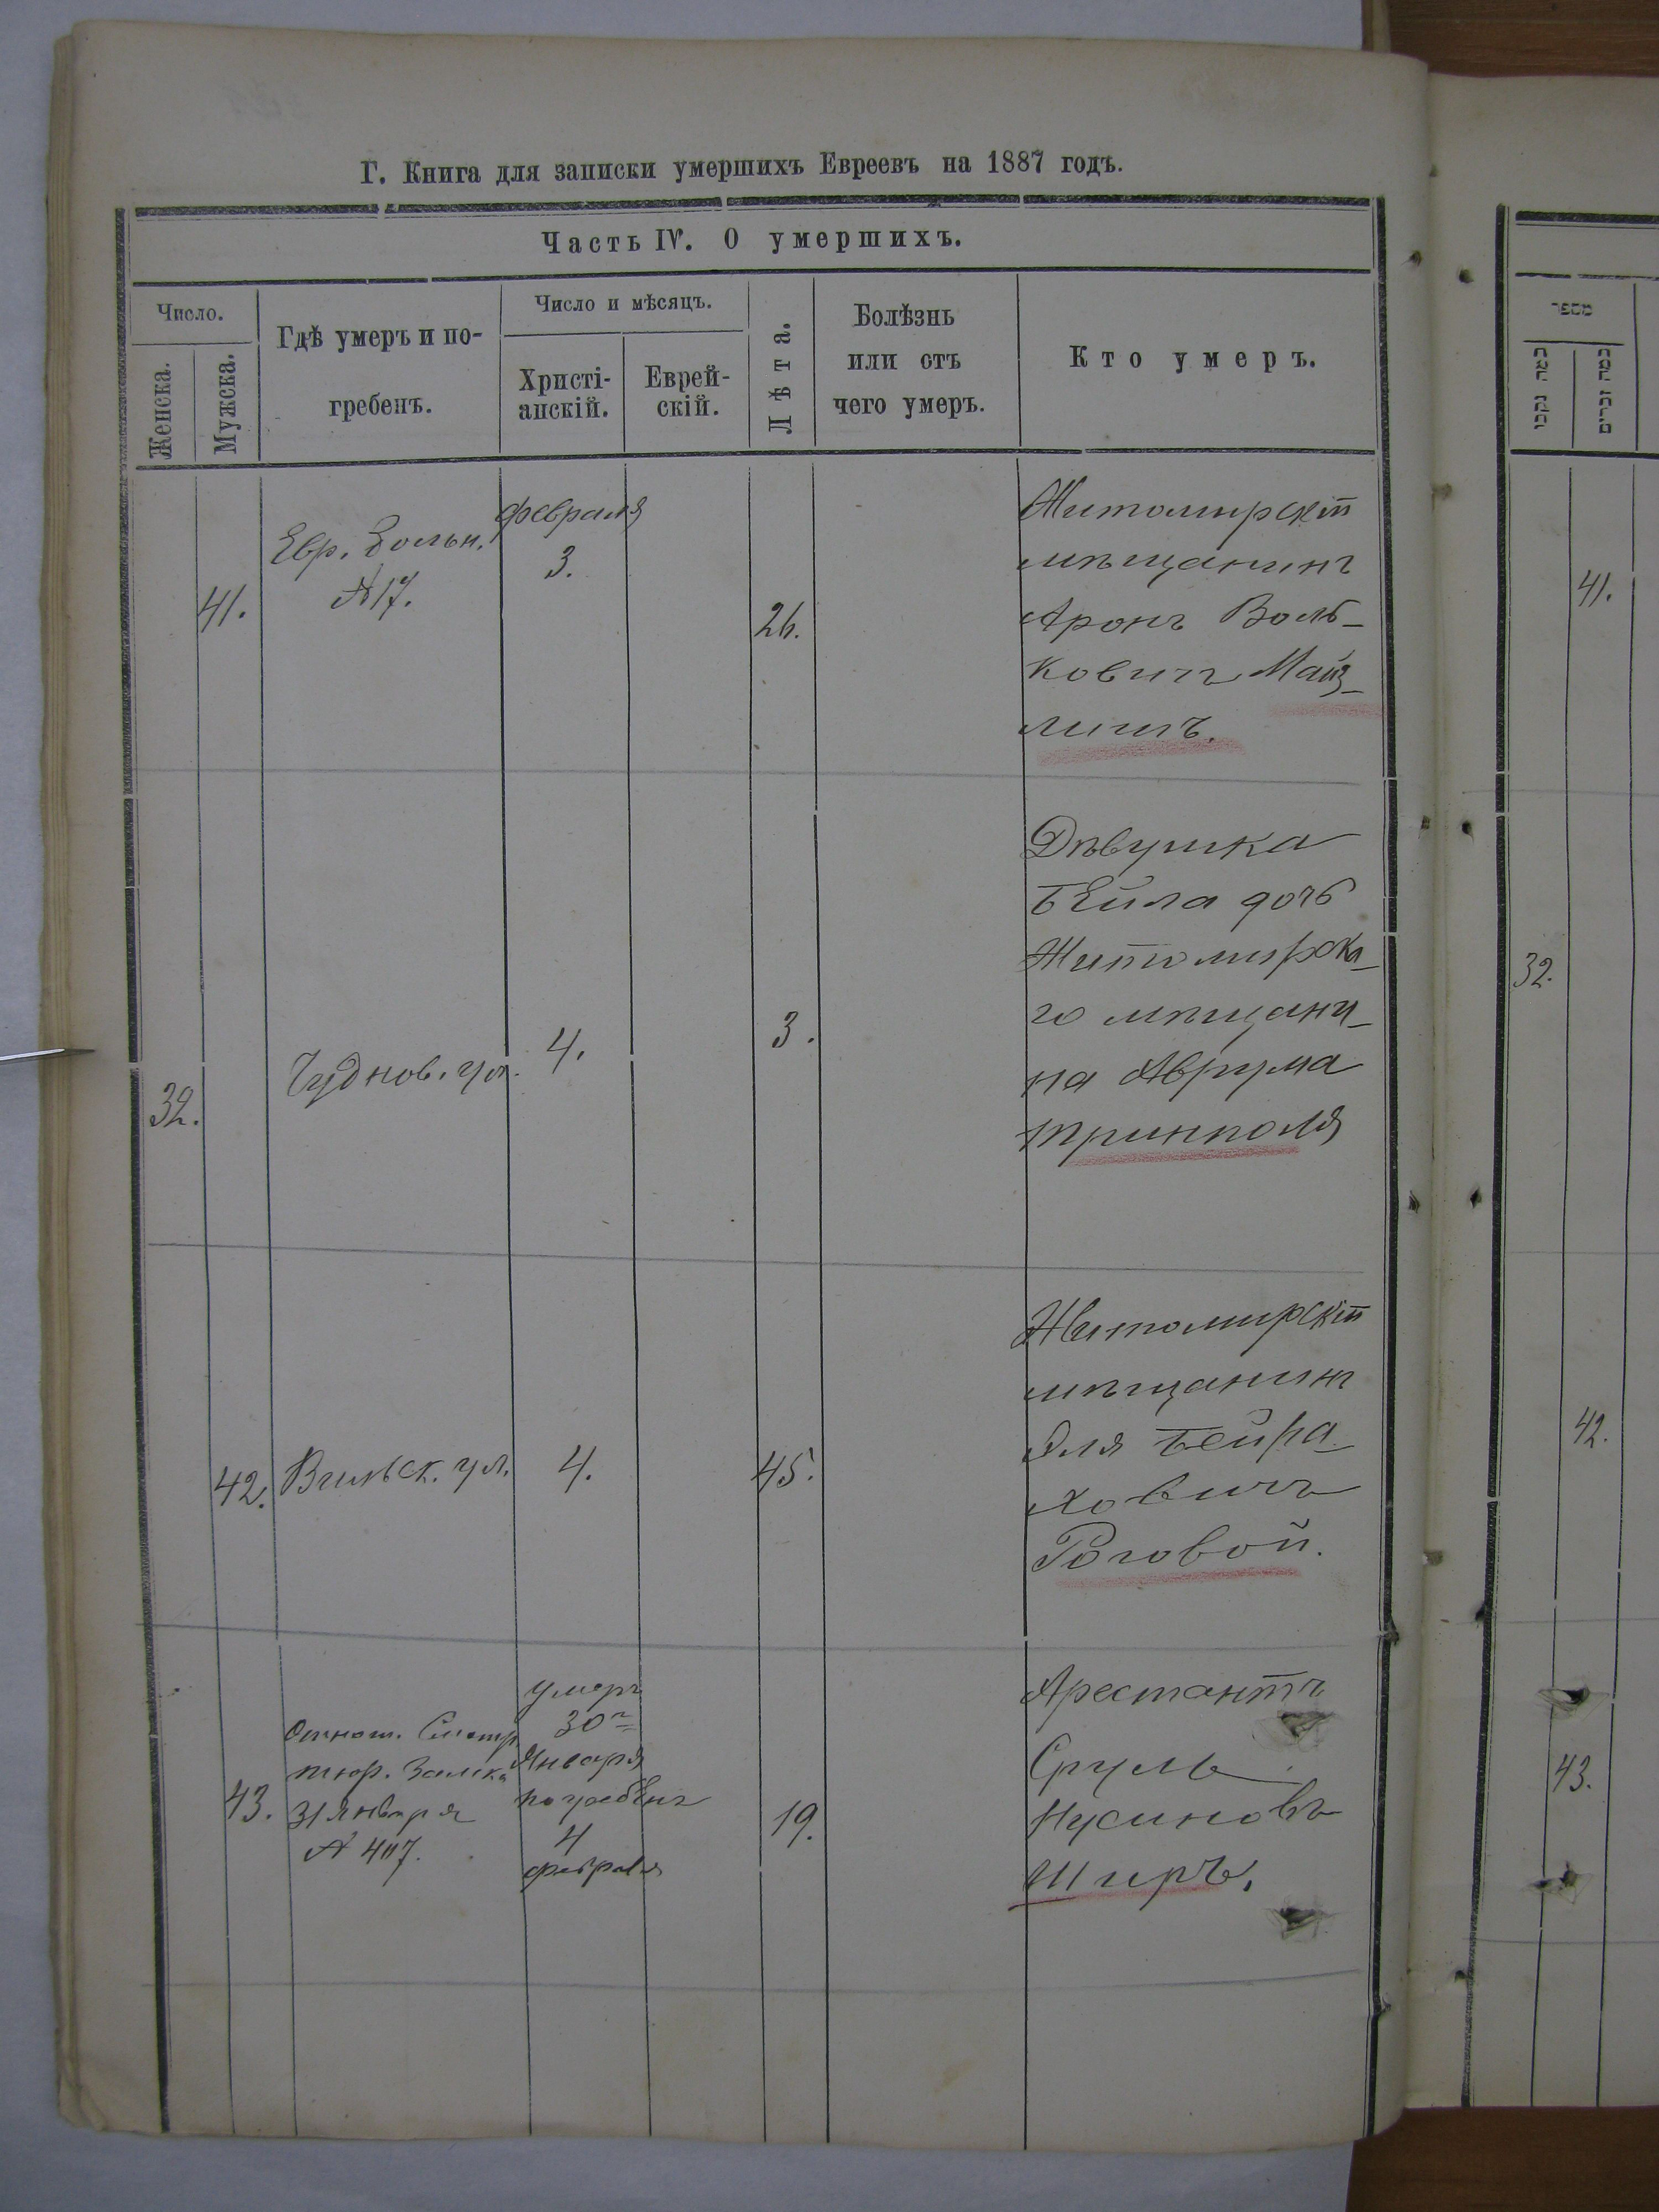 Г. Книга для записки умершихъ Евреевъ на 1887 годъ.
Часть IV. О умершихъ.
Число.
Женска.
Мужска.
Гдѣ умеръ и по-
гребенъ.
Число и мѣсяцъ.
Христі-
анскій.
Еврей-
скій.
Лѣта.
Болѣзнь
или отъ
чего умеръ.
Кто умеръ.
41.
Евр. больн.
№ 17.
февраля
3.
26.
Житомирскій
мѣщанинъ
Аронъ Воль-
ковичъ Майз-
лишъ.
32.
Чуднов. ул.
4.
3.
Дѣвушка
Бейла дочь
Житомирска-
го мѣщани-
на Аврума
Тринполя
42.
Вильск. ул.
4.
45.
Житомирскій
мѣщанинъ
Эля Бейра
ховичъ
Роговой.
43.
Отнош. Смотр.
тюр. Замка
31 января
№ 407.
умеръ
30го
Января
погребенъ
4
февраля
19.
Арестантъ
Сруль
Нусиновъ
Широ.
מספר
כמה זכרים
41.
32.
42.
43.